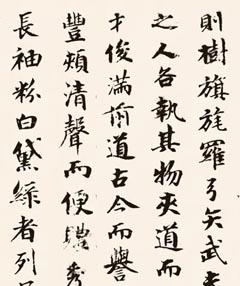 則樹旗旄羅弓矢武夫
之人各執其物夾道而
才俊滿前道古今而譽
豐頰清聲而便體秀
長袖粉白黛綠者列